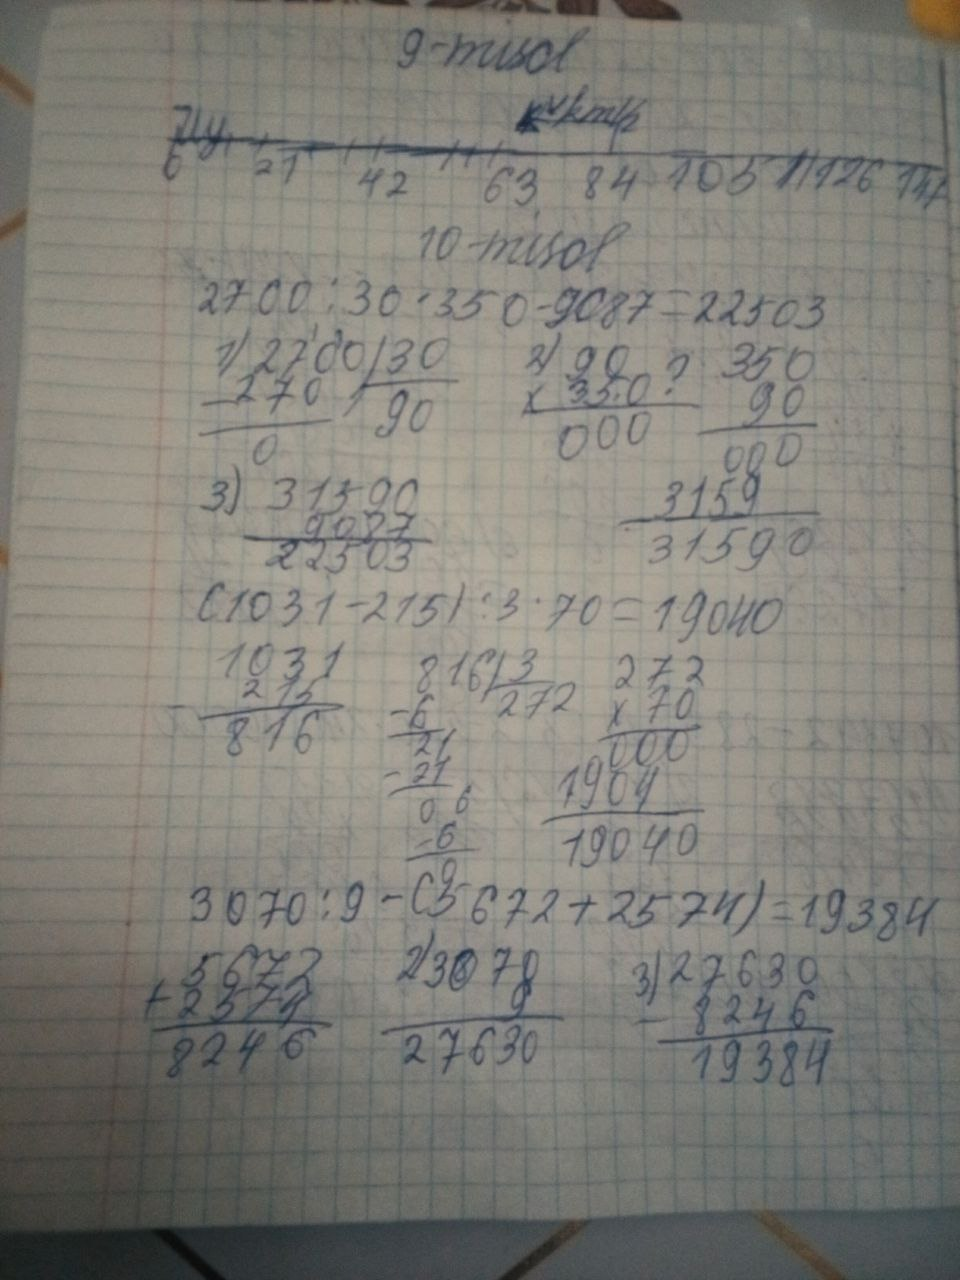 9-misol
0 21 42 63 84 105 126 147
10-misol
2700:30·350-9087=22503
1) 2700 30 2) 90 ? 350
- 270 90 x 350 ? 90
0 000 000
3) 31590 3159
9087 31590
22503
(1031-215):3·70=19040
1031 816 3 272
- 215 272 x 70
816 -6 000
21 1904
-21 19040
0 6
-6
0
3070:9-(5672+2574)=19384
5672 2) 3070 3) 27630
+ 2574 9 - 8246
8246 27630 19384